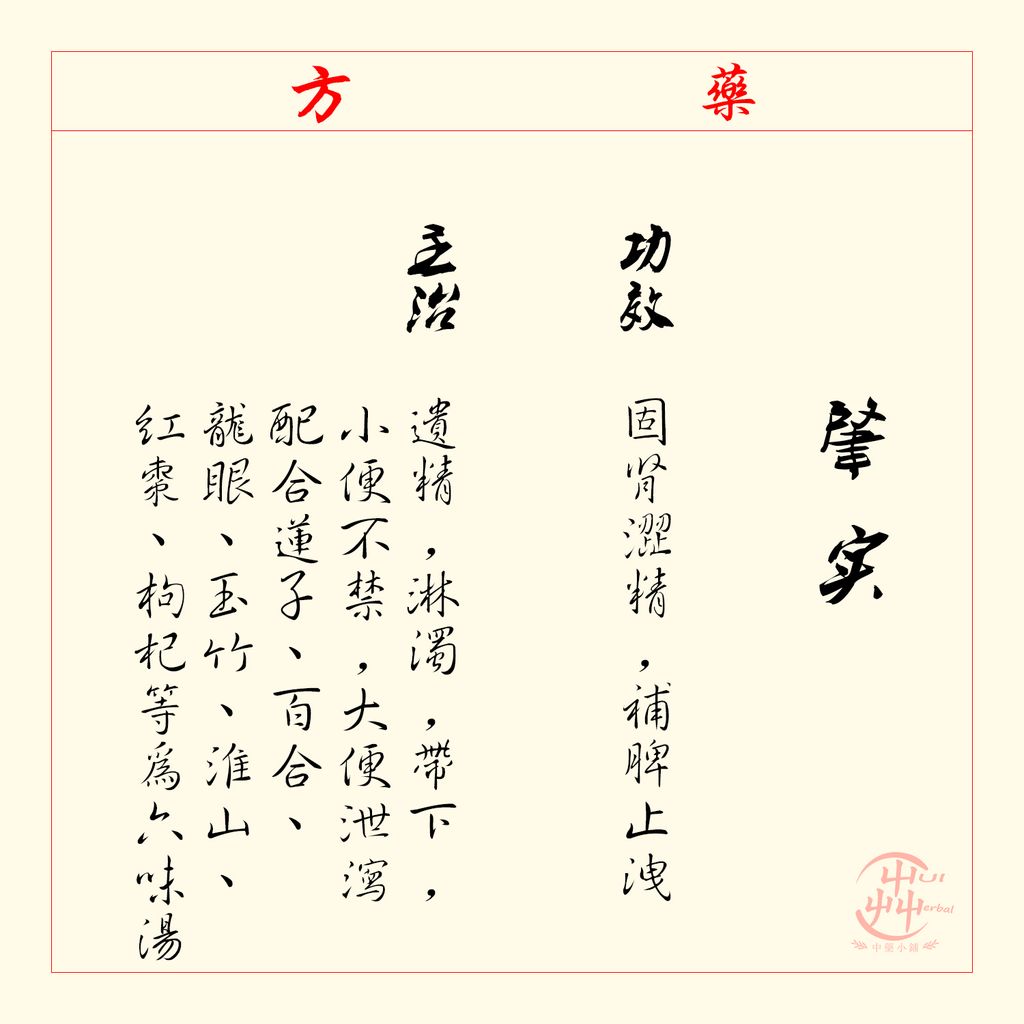 藥方
肇实
功效
固肾澀精，補脾止洩
主治
遺精，淋濁，帶下，
小便不禁，大便泄瀉
配合蓮子、百合、
龍眼、玉竹、淮山、
红棗、枸杞等爲六味湯
HUI
Herbal
中藥小鋪